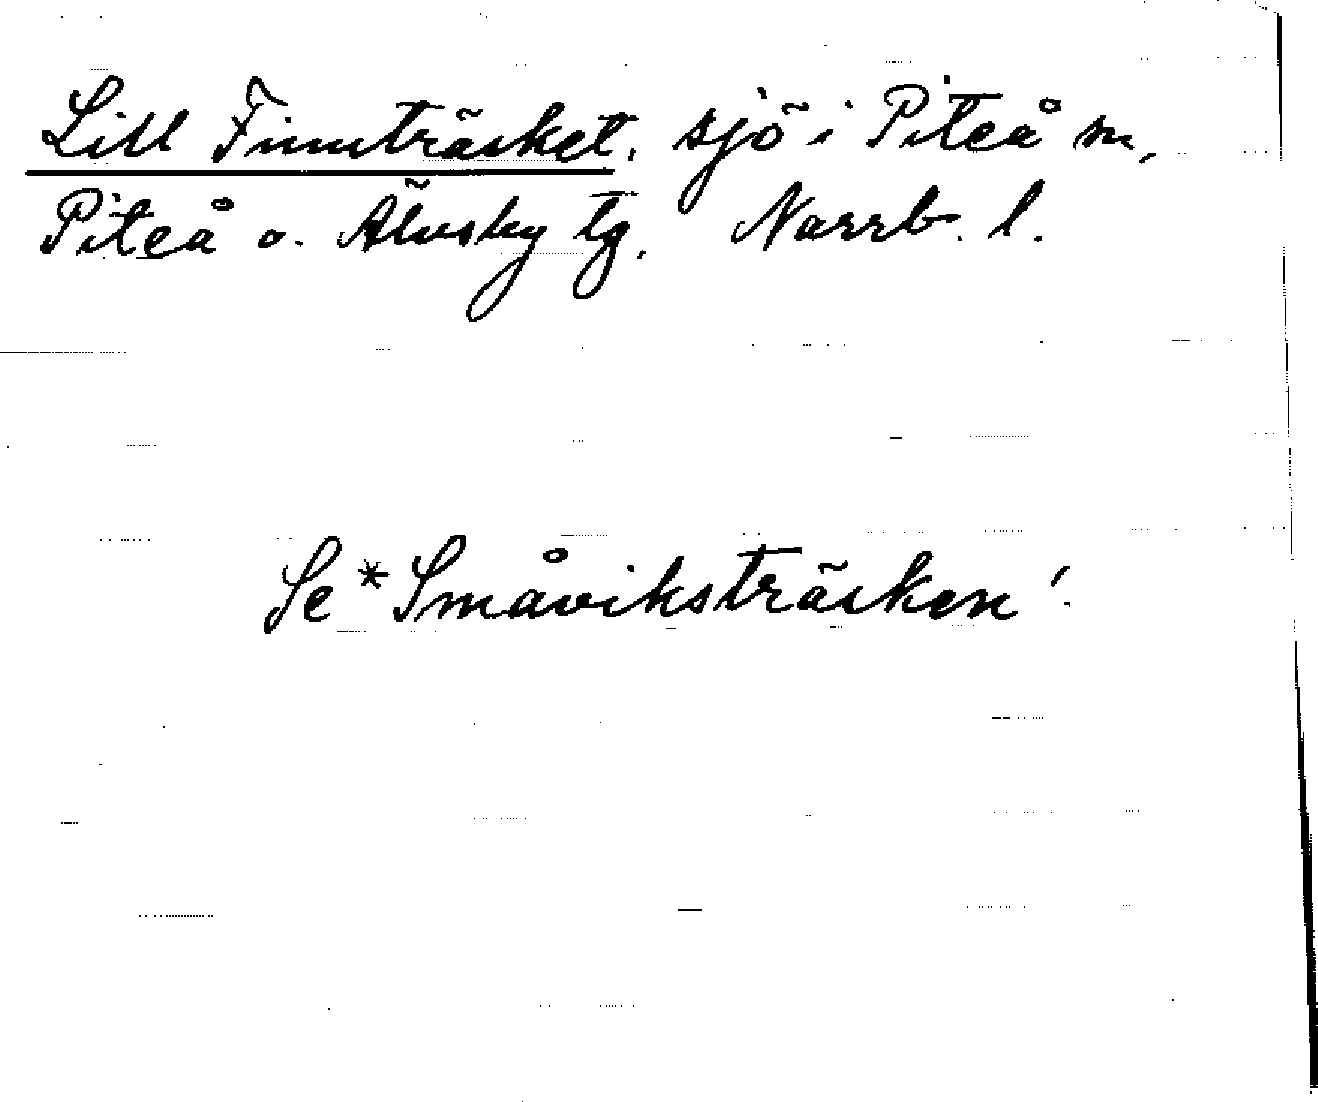 Lill Finnträsket, sjö i Piteå sn,
Piteå o. Älvsby tg, Norrb. l.
Se *Småviksträsken!